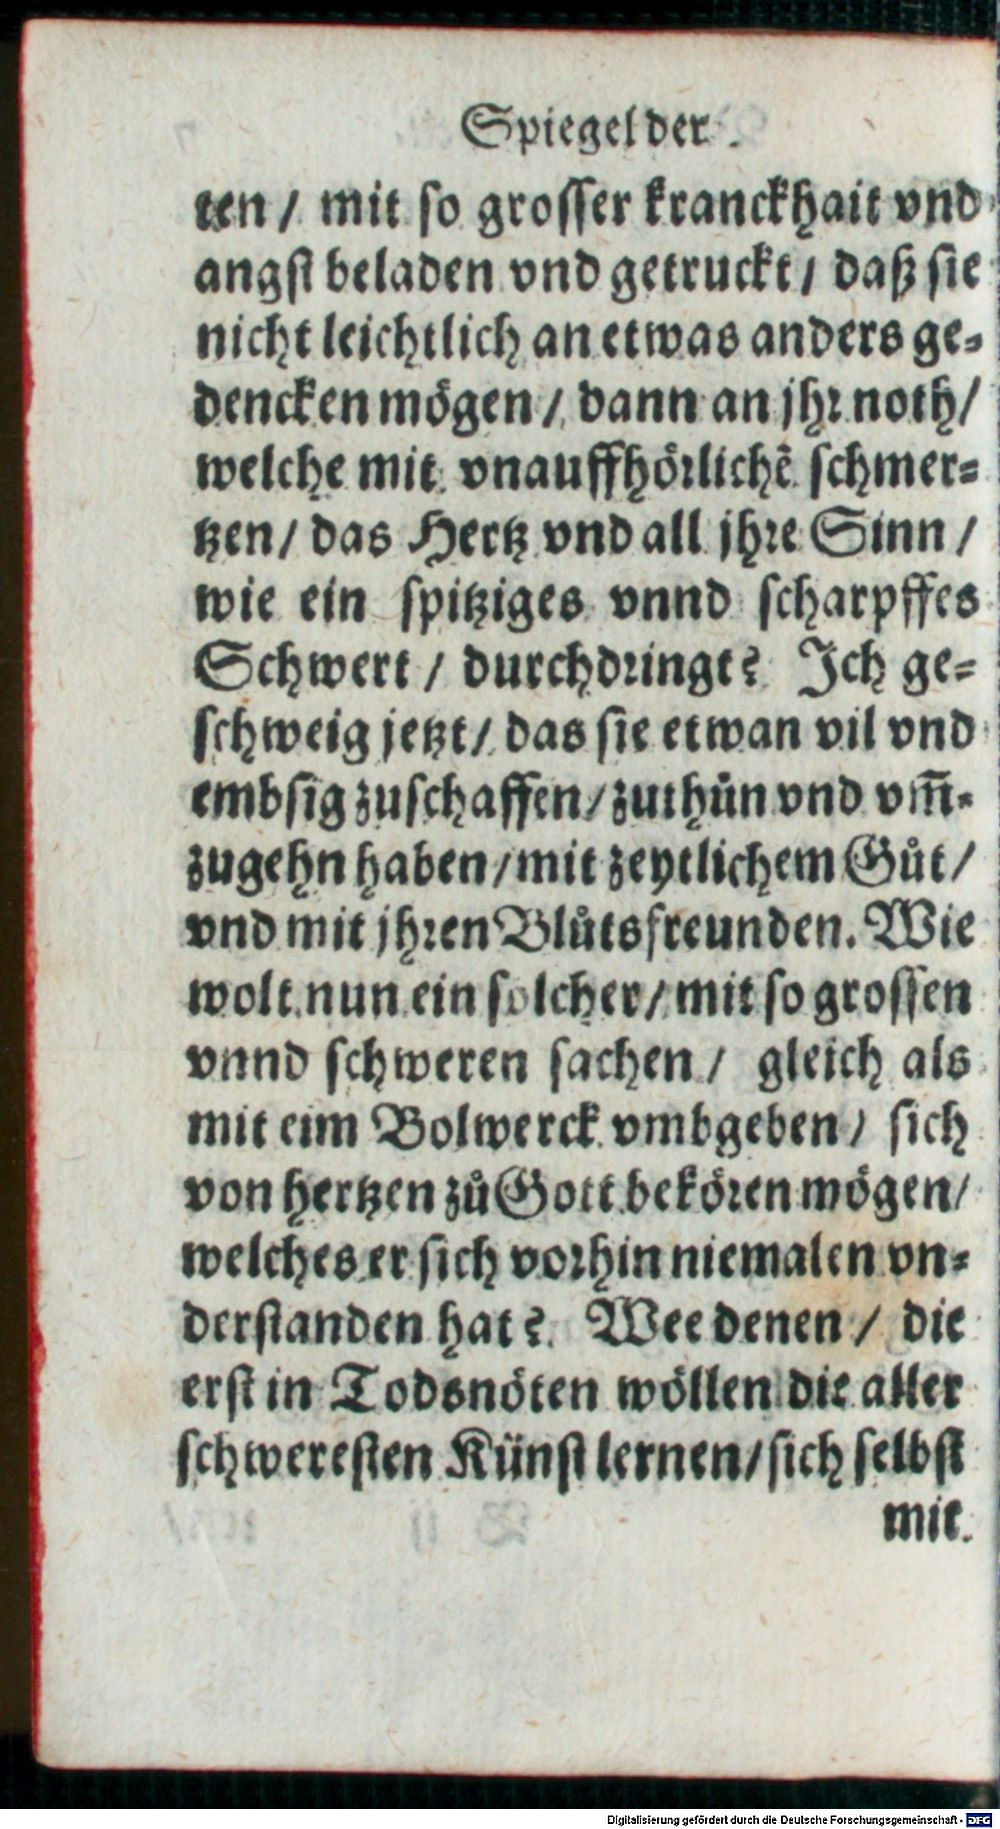 Spiegel der
ten / mit so grosser kranckhait vnd
angst beladen vnd getruckt / daß sie
nicht leichtlich an etwas anders ge-
dencken mögen / dann an jhr noth /
welche mit vnauffhörlichẽ schmer-
tzen / das Hertz vnd all jhre Sinn /
wie ein spitziges vnnd scharpffes
Schwert / durchdringt? Ich ge-
schweig jetzt / das sie etwan vil vnd
embsig zuschaffen / zuthůn vnd vm̃-
zugehn haben / mit zeytlichem Gůt /
vnd mit jhren Blůtsfreunden. Wie
wolt nun ein solcher / mit so grossen
vnnd schweren sachen / gleich als
mit eim Bolwerck vmbgeben / sich
von hertzen zů Gott bekören mögen /
welches er sich vorhin niemalen vn-
derstanden hat? Wee denen / die
erst in Todsnöten wöllen die aller
schweresten Künst lernen / sich selbst
mit
Digitalisierung gefördert durch die Deutsche Forschungsgemeinschaft - DFG